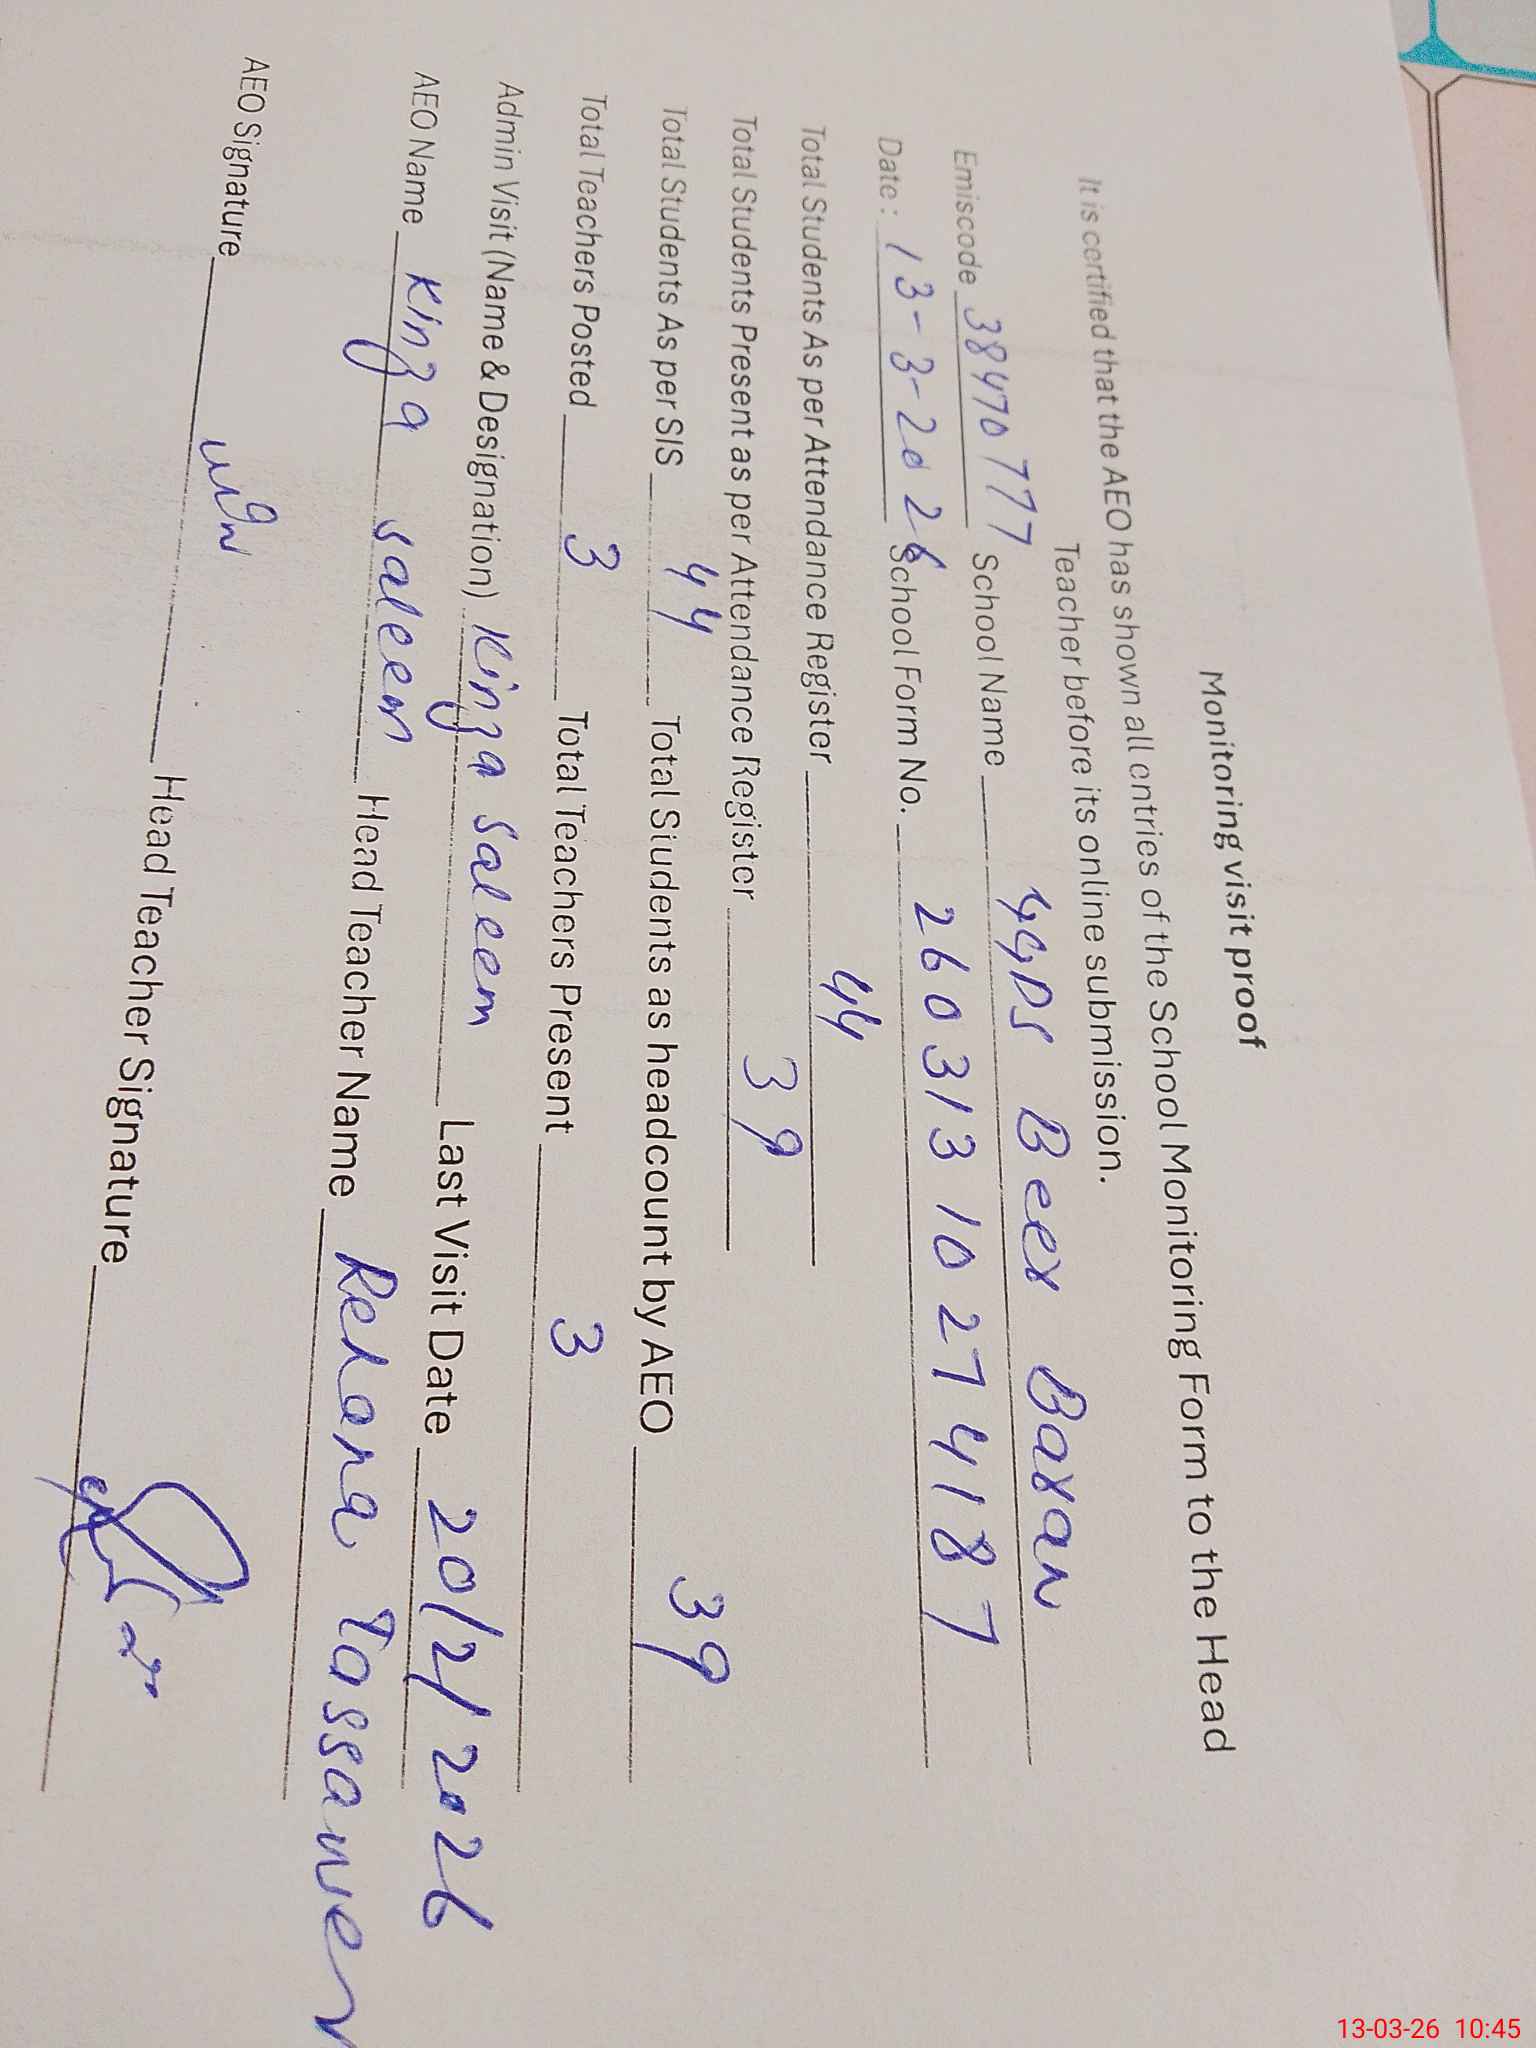 Monitoring visit proof
It is certified that the AEO has shown all entries of the School Monitoring Form to the Head
Teacher before its online submission.
Emiscode 38470777 School Name GGPS Beer Baran
Date: 13-3-2026 School Form No. 26031310274187
Total Students As per Attendance Register 44
Total Students Present as per Attendance Register 39
Total Students As per SIS 44 Total Students as headcount by AEO 39
Total Teachers Posted 3 Total Teachers Present 3
Admin Visit (Name & Designation) Kinza saleem Last Visit Date 20/2/2026
AEO Name Kinza saleem Head Teacher Name
AEO Signature Head Teacher Signature
13-03-26 10:45